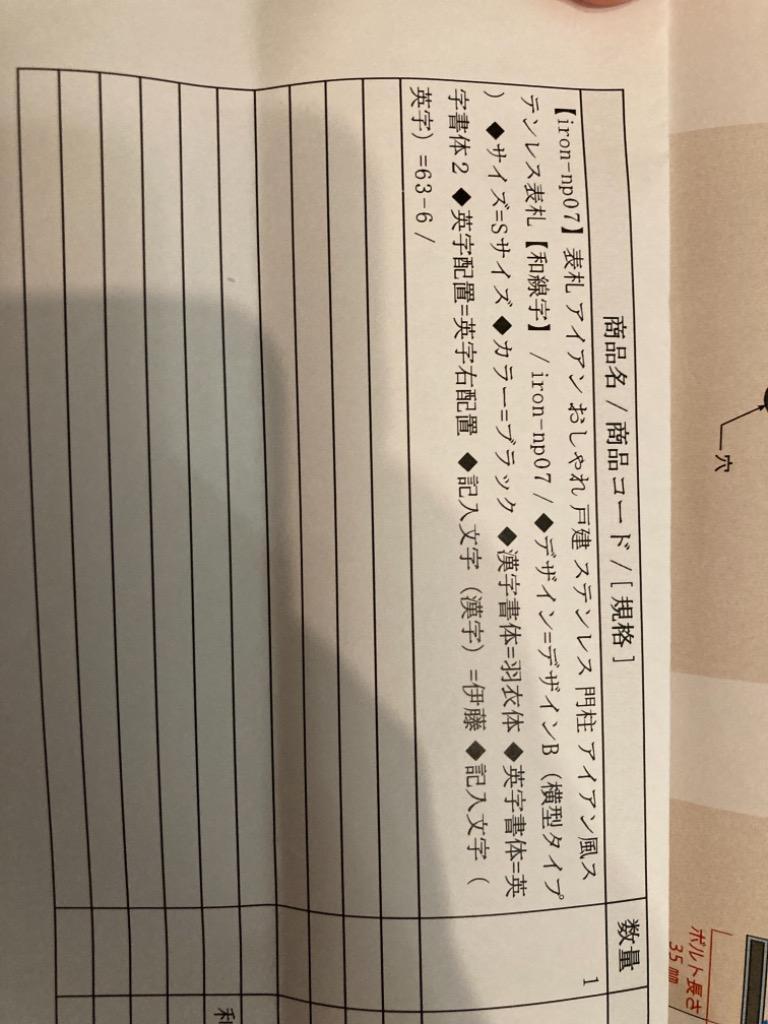 穴
ボルト長さ
35㎜
商品名 / 商品コード / [ 規格 ]
数量
【iron-np07】表札 アイアン おしゃれ 戸建 ステンレス 門柱 アイアン風ス
テンレス表札【和線字】 / iron-np07 / ◆デザイン=デザインB（横型タイプ
） ◆サイズ=Sサイズ ◆カラー=ブラック ◆漢字書体=羽衣体 ◆英字書体=英
字書体2 ◆英字配置=英字右配置 ◆記入文字（漢字）=伊藤 ◆記入文字（
英字）=63-6 /
1